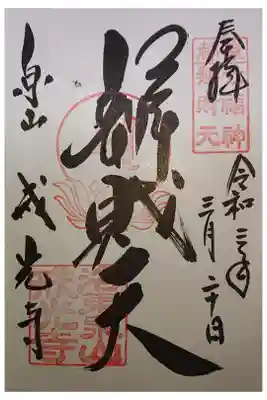 奉拝
令和三年
三月二十日
辨財天
泉山 戒光寺